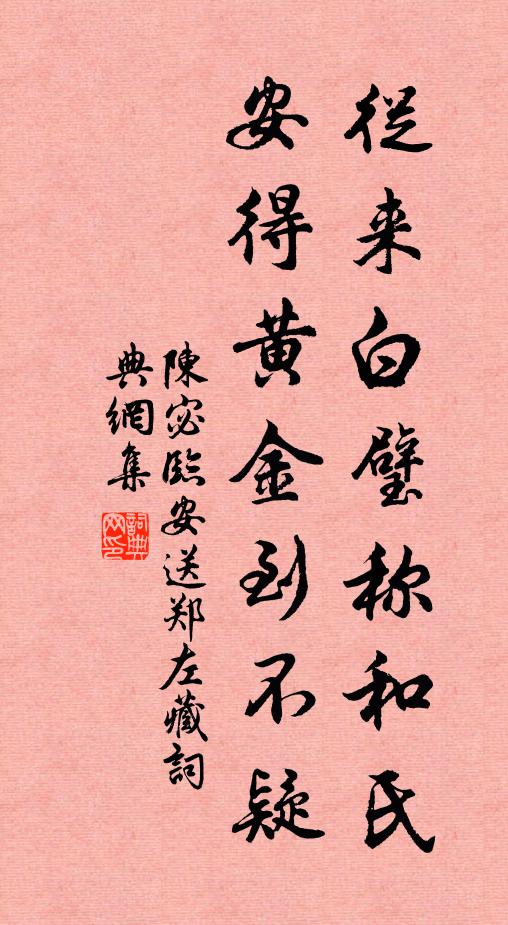 従来白璧称和氏
安得黄金到不疑
陳宓臨安送郑左藏詞
典網集
詞典网印